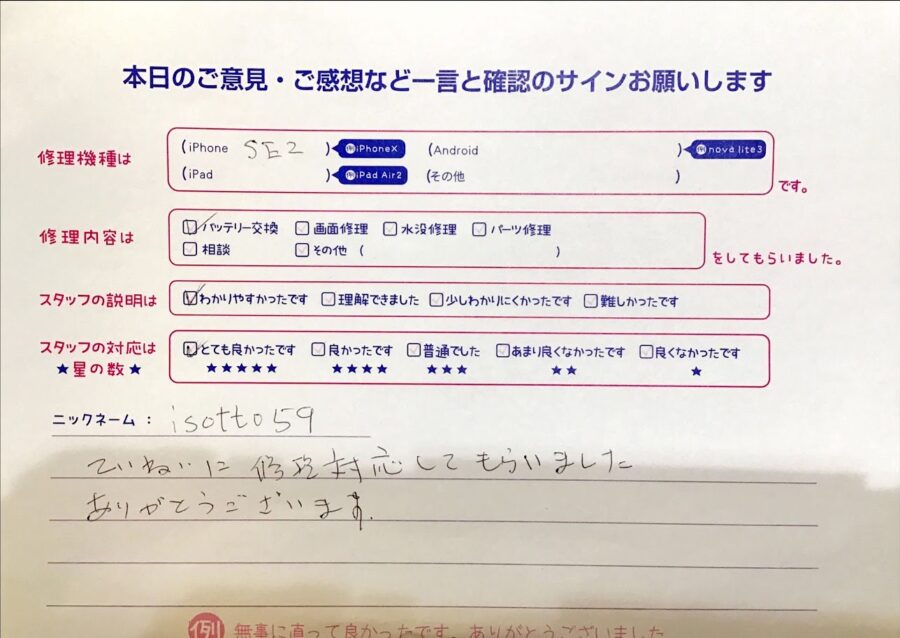 本日のご意見・ご感想など一言と確認のサインお願いします
修理機種は
(iPhone SE2 ) 例 iPhoneX (Android ) 例 nova lite3
(iPad ) 例 iPad Air2 (その他 ) です。
修理内容は
バッテリー交換 画面修理 水没修理 パーツ修理
相談 その他 ( ) をしてもらいました。
スタッフの説明は わかりやすかったです 理解できました 少しわかりにくかったです 難しかったです
スタッフの対応は とても良かったです 良かったです 普通でした あまり良くなかったです 良くなかったです
★星の数★ ★★★★★ ★★★★ ★★★ ★★ ★
ニックネーム: isotto59
ていねいに 修理対応してもらいました
ありがとうございます.
例 無事に直って良かったです。ありがとうございました